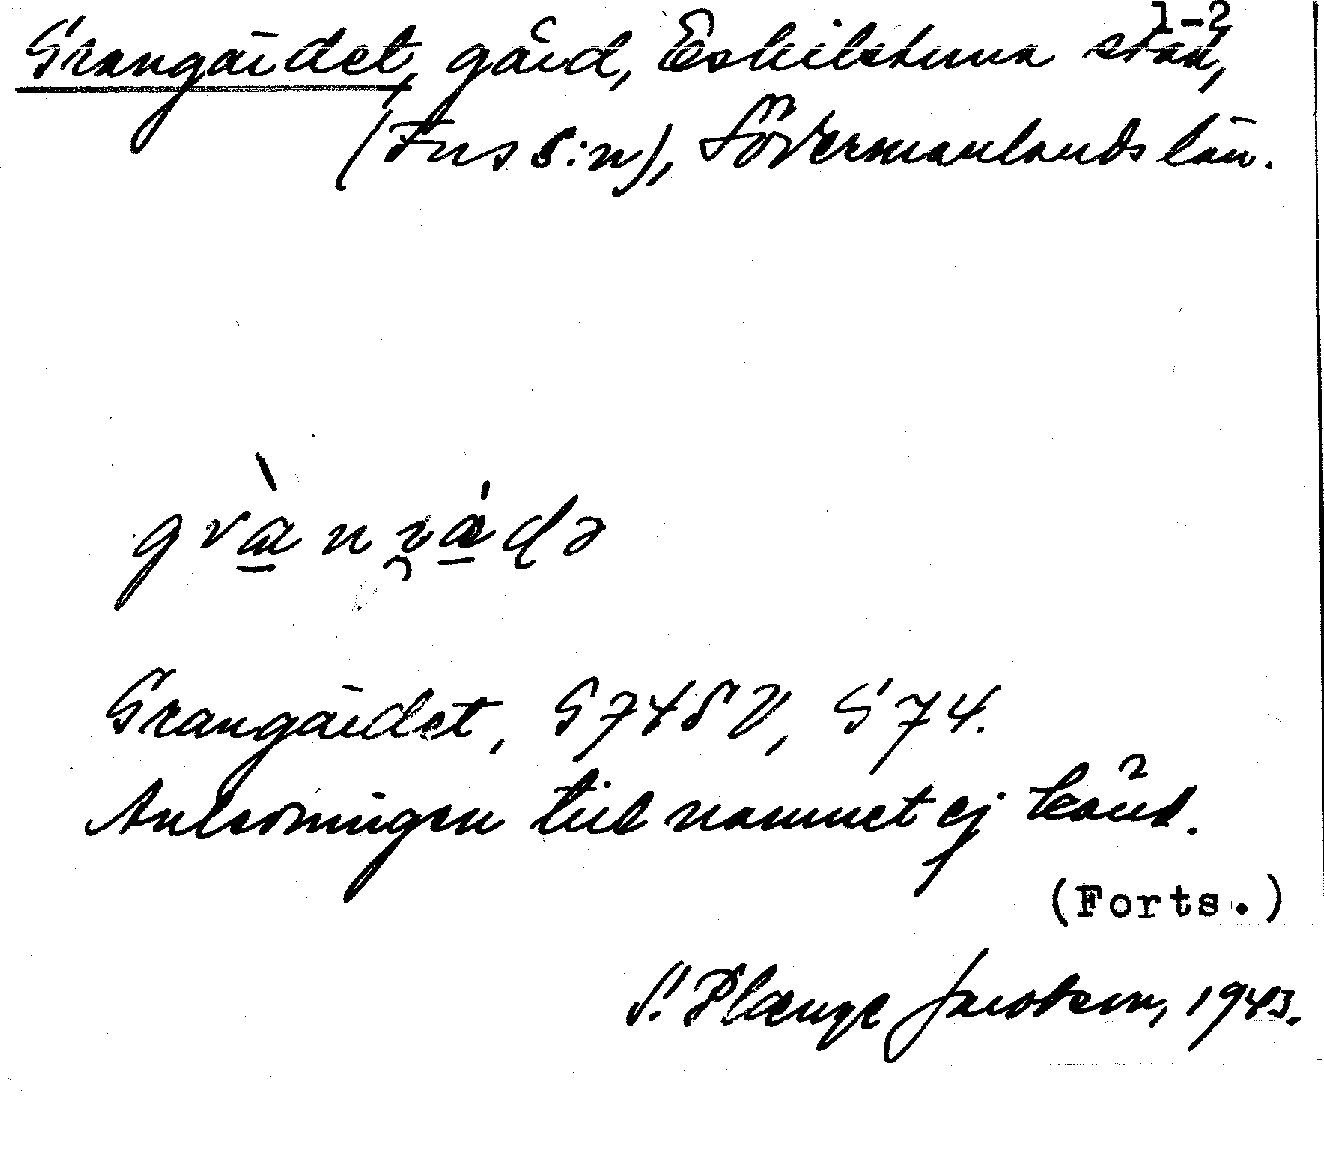 1-2
Grangärdet, gård, Eskilstuna stad,
(Fors s:n), Södermanlands län.
Grangärdet, G74SV, G74.
Anledningen till namnet ej känd.
(Forts.)
S. Plænge Jacobson, 1943.